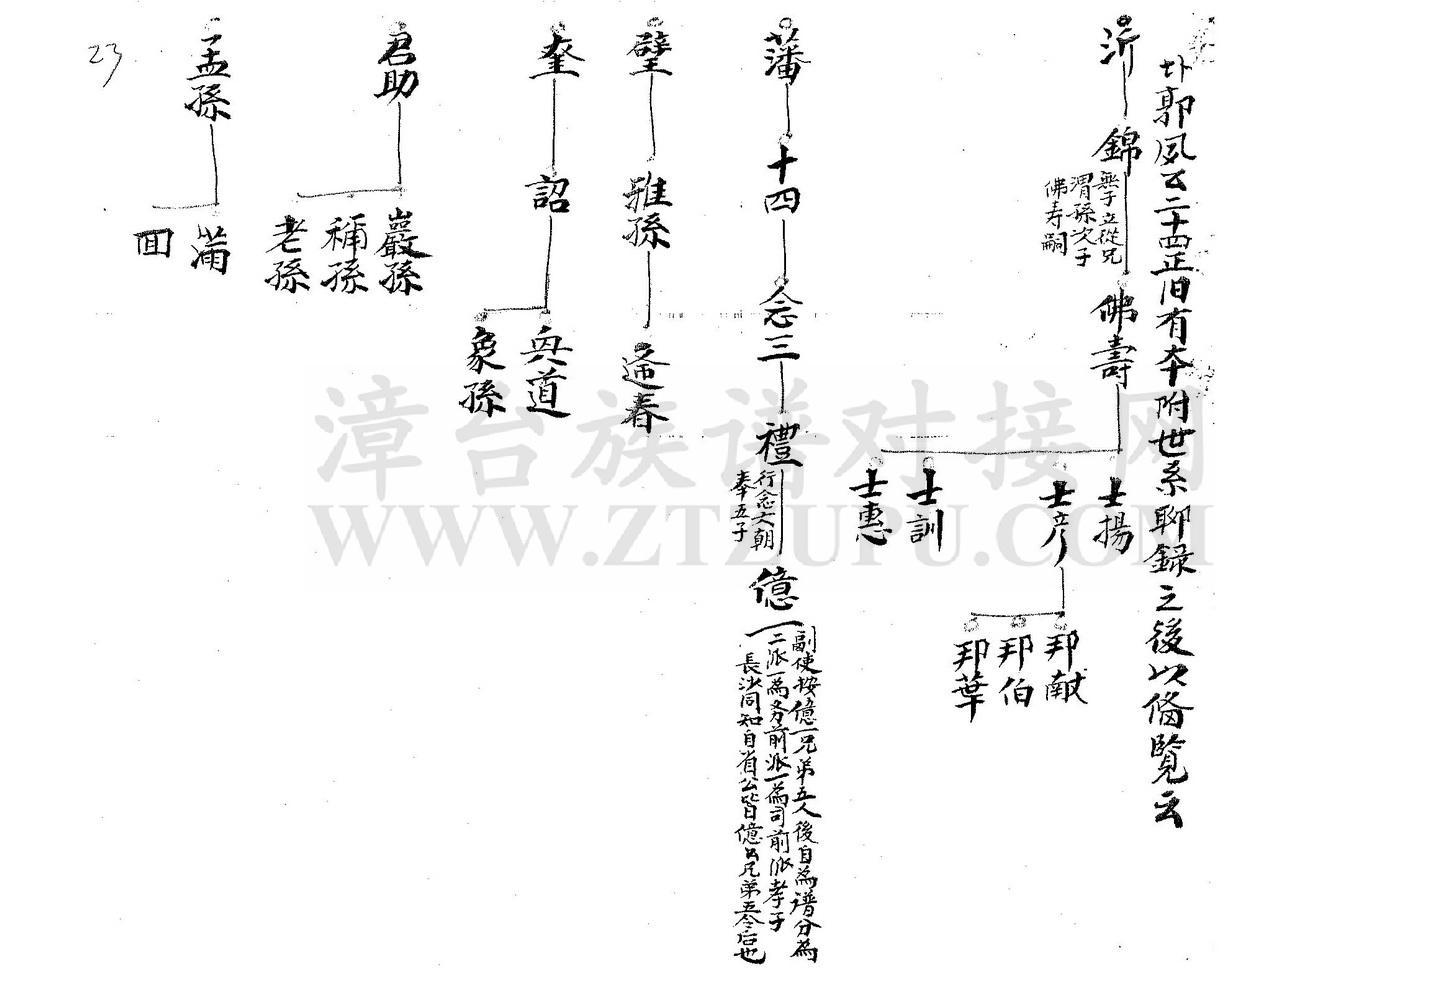 圤郭夙公二十四正旧有本附世系聊錄之後以俻覽云
沂
錦
無子立從兄
渭孫次子
佛寿嗣
佛壽
士揚
士彦
士訓
士惠
邦献
邦伯
邦葉
藩
十四
念三
禮
行念大朝
奉五子
億一
副使按億一兄弟五人後自為谱分為
二派一為务前派一為司前派孝子
長沙同知自省公皆億公兄弟五令后也
璧
雅孫
遥春
奎
詔
與道
象孫
君助
巖孫
稱孫
老孫
孟孫
蒲
面
23
漳台族谱对接网
WWW.ZTZUPU.COM